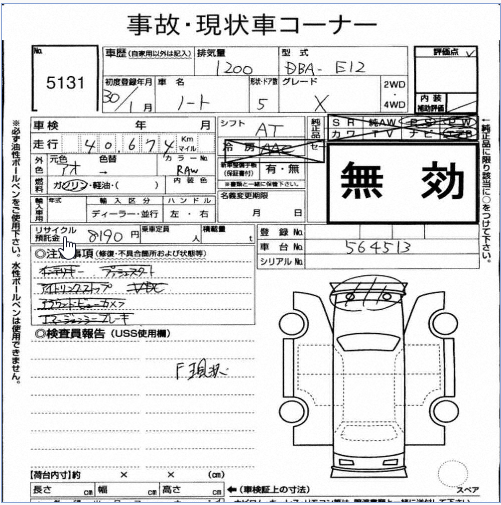 事故・現状車コーナー
No.
5131
車歴 (自家用以外は記入)
排気量
型式
評価点
1200
DBA- E12
初度登録年月
車名
形状・ドア数
グレード
2WD
・
4WD
内装
補助評価
30/1月
ノート
5
X
車検 年 月
シフト
AT
純正品
SR 純AW
カワ TV ナビ
走行 40,674 Km マイル
冷房
AAC
外色
元色
色替
カラーNo.
アオ
→
RAW
有・無
燃料
ガソリン・軽油・( )
内装色
※書類と一緒に保管下さい。
無効
輸入車用
年式
輸入区分
ハンドル
ディーラー・並行
左・右
名義変更期限
月 日
リサイクル預託金
8190円
乗車定員
人
積載量
t
登録No.
車台No.
564513
シリアルNo.
◎注意事項 (修復・不具合箇所および状態等)
インテリキー プッシュスタート
アイドリングストップ VDC
アラウンドビューカメラ
エマージェンシーブレーキ
◎検査員報告 (USS使用欄)
F現状
【荷台内寸】約 × × (cm)
長さ cm 幅 cm 高さ cm
←(車検証上の寸法)
スペア
※必ず油性ボールペンをご使用下さい。水性ボールペンは使用できません。
←純正品に限り該当に○をつけて下さい。